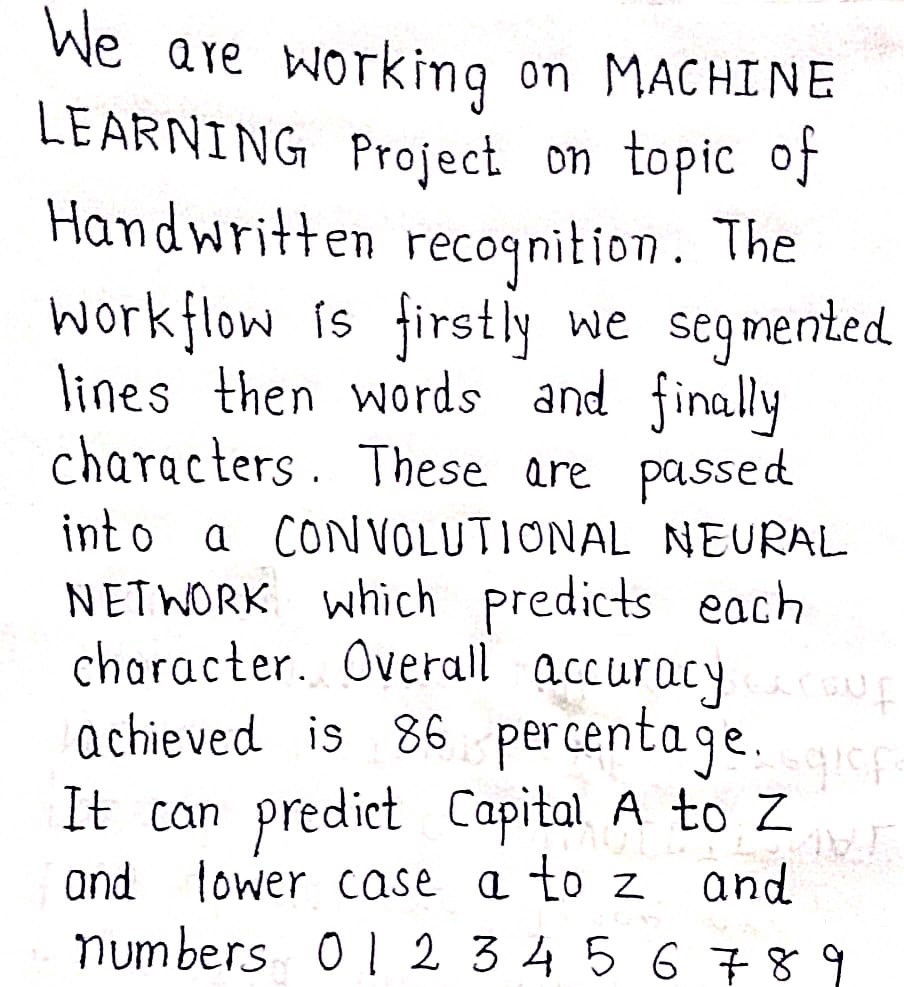 We are working on MACHINE
LEARNING Project on topic of
Handwritten recognition. The
workflow is firstly we segmented
lines then words and finally
characters. These are passed
into a CONVOLUTIONAL NEURAL
NETWORK which predicts each
character. Overall accuracy
achieved is 86 percentage.
It can predict Capital A to Z
and lower case a to z and
numbers 0 1 2 3 4 5 6 7 8 9